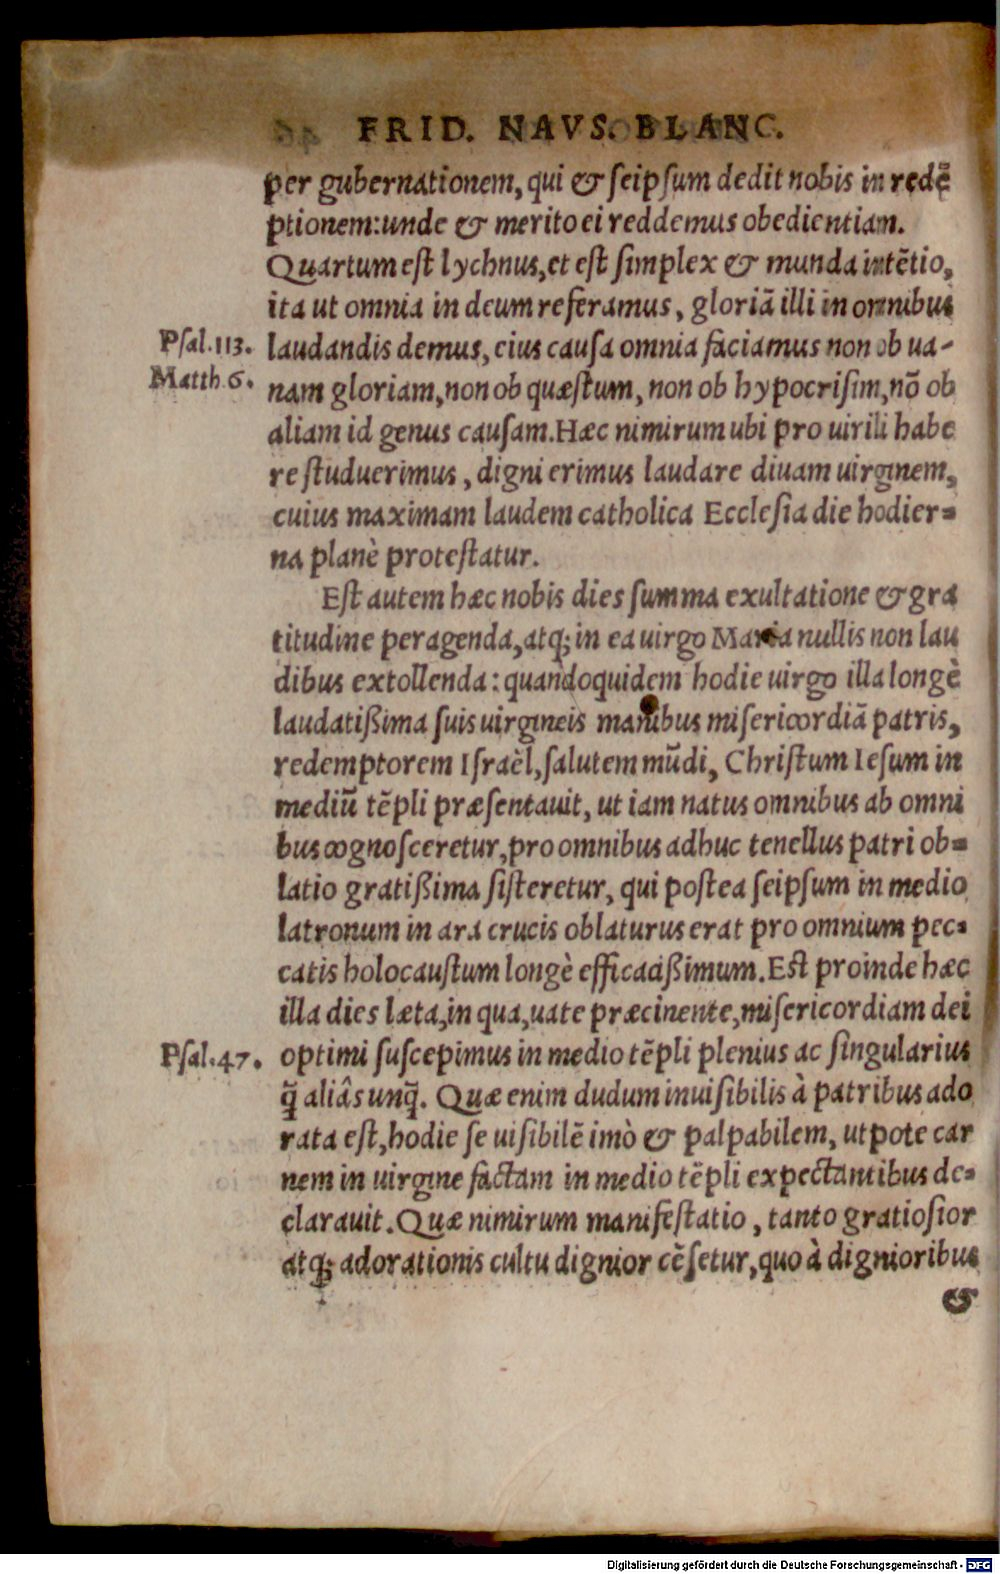 FRID. NAVS. BLANC.
per gubernationem, qui & seipsum dedit nobis in redē
ptionem: unde & merito ei reddemus obedientiam.
Quartum est lychnus, et est simplex & munda intētio,
ita ut omnia in deum referamus, gloriā illi in omnibus
Psal. 113. laudandis demus, eius causa omnia faciamus non ob ua-
Matth. 6. nam gloriam, non ob quæstum, non ob hypocrisim, nō ob
aliam id genus causam. Hæc nimirum ubi pro uirili habe
re studuerimus, digni erimus laudare diuam uirginem,
cuius maximam laudem catholica Ecclesia die hodier-
na planè protestatur.
Est autem hæc nobis dies summa exultatione & gra
titudine peragenda, atq; in ea uirgo Maria nullis non lau
dibus extollenda: quandoquidem hodie uirgo illa longè
laudatißima suis uirgineis manibus misericordiā patris,
redemptorem Israèl, salutem mūdi, Christum Iesum in
mediū tēpli præsentauit, ut iam natus omnibus ab omni
bus cognosceretur, pro omnibus adhuc tenellus patri ob-
latio gratißima sisteretur, qui postea seipsum in medio
latronum in ara crucis oblaturus erat pro omnium pec-
catis holocaustum longè efficacißimum. Est proinde hæc
illa dies læta, in qua, uate præcinente, misericordiam dei
Psal. 47. optimi suscepimus in medio tēpli plenius ac singularius
q̄ aliâs unq̄. Quæ enim dudum inuisibilis à patribus ado
rata est, hodie se uisibilē imò & palpabilem, utpote car
nem in uirgine factam in medio tēpli expectantibus de-
clarauit. Quæ nimirum manifestatio, tanto gratiosior
atq; adorationis cultu dignior cēsetur, quo à dignioribus
&
Digitalisierung gefördert durch die Deutsche Forschungsgemeinschaft - DFG